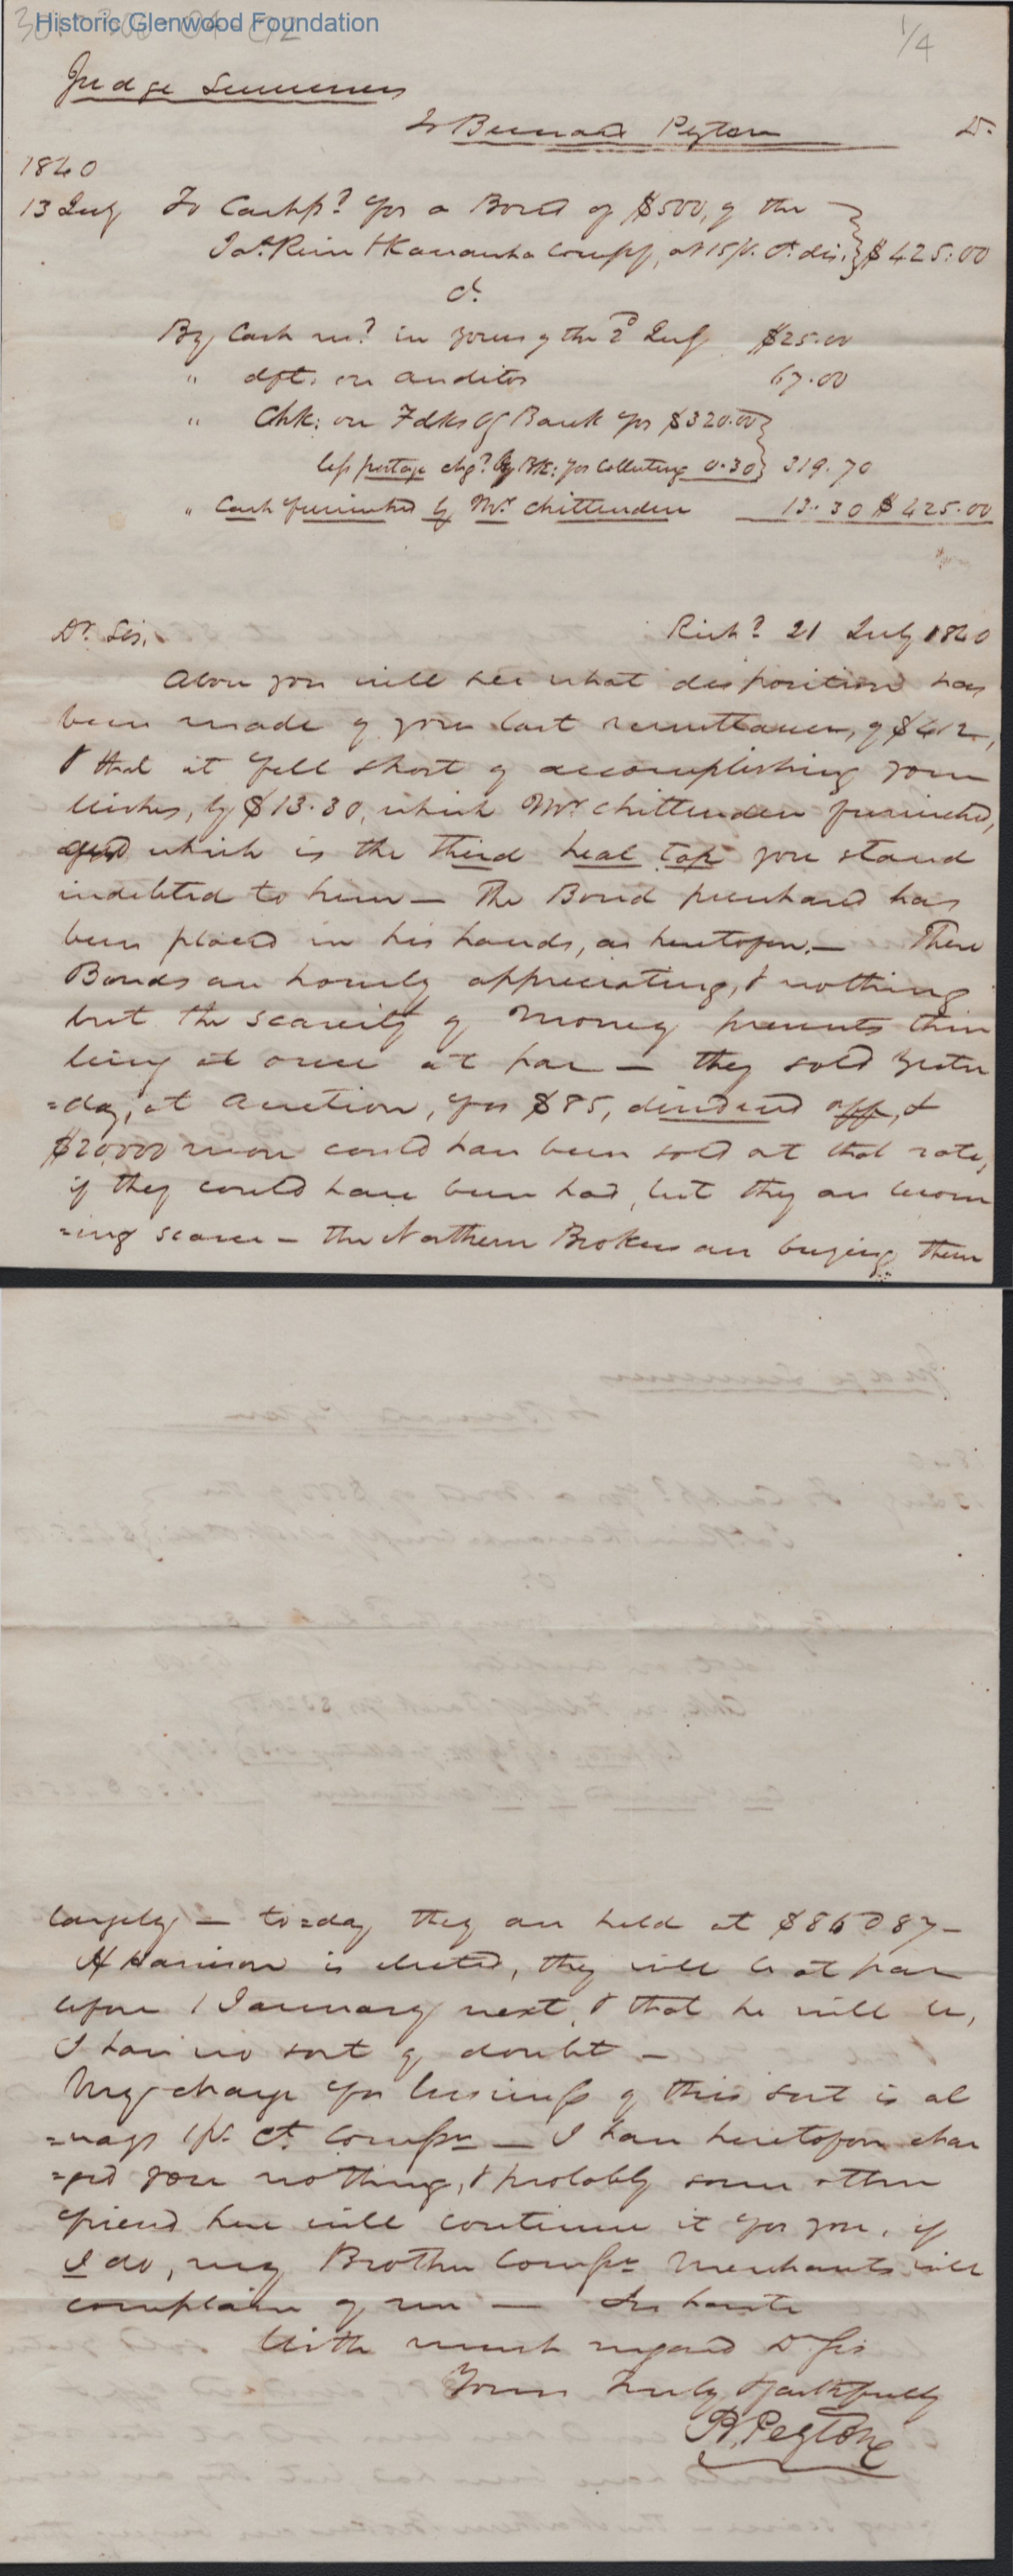 Historic Glenwood Foundation
1/4
Judge Summers
To Bernard Peyton Dr.
1840
13 July To Cash pd. for a Bond of $500, of the
Jas. River & Kanawha Compy, at 15 pr. Ct. dis. $425.00
Cr.
By Cash recd. in yours of the 2d July $25.00
" dft. on Auditor 67.00
" Chk: on Fdksbg Bank for $320.00
less postage chgd. by Bk: for Collecting 0.30 319.70
" Cash furnished by Mr. Chittenden 13.30 $425.00
Dr. Sir, Richd. 21 July 1840
Above you will see what disposition has
been made of your last remittance, of $412,
& that it fell short of accomplishing your
wishes, by $13.30, which Mr. Chittenden furnished,
and which is the third heal tap you stand
indebted to him — The Bond purchased has
been placed in his hands, as heretofore. — These
Bonds are hourly appreciating, & nothing
but the scarcity of Money prevents their
being at once at par — they sold yester
=day, at Auction, for $85, dividend off, &
$20,000 more could have been sold at that rate,
if they could have been had, but they are becom
=ing scarce — The Northern Brokers are buying them
largely — to=day they are held at $86 @ 87 —
If Harrison is elected, they will be at par
before 1 January next, & that he will be,
I have no sort of doubt —
My charge for business of this sort is al
=ways 1 pr. Ct. Compn — I have heretofore char
=ged you nothing, & probably some other
friend here will continue it for you, if
I do, my Brother Compn Merchants will
complain of me — In haste
With much regard Dr Sir
Yours truly & faithfully
B. Peyton